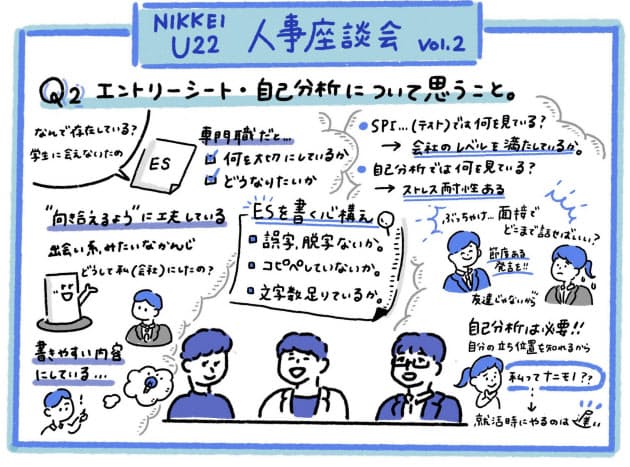 NIKKEI
U22 人事座談会 VOL.2
Q2 エントリーシート・自己分析について思うこと。
なんで存在している?
学生に会えないための
ES
専門職だと…
何を大切にしているか
どうなりたいか
SPI…(テスト)では何を見ている?
→ 会社のレベルを満たしているか。
自己分析では何を見ている?
→ ストレス耐性ある
"向き合えるよう"に工夫している
出会い系みたいなかんじ
どうして私(会社)にしたの?
書きやすい内容
にしている…
ESを書く心構え
誤字、脱字ないか。
コピペしていないか。
文字数足りているか。
ぶっちゃけ…面接で
どこまで話せばいい?
節度ある
発言を!!
友達じゃないから
自己分析は必要!!
自分の立ち位置を知れるから
私ってナニモノ??
就活時にやるのは遅い